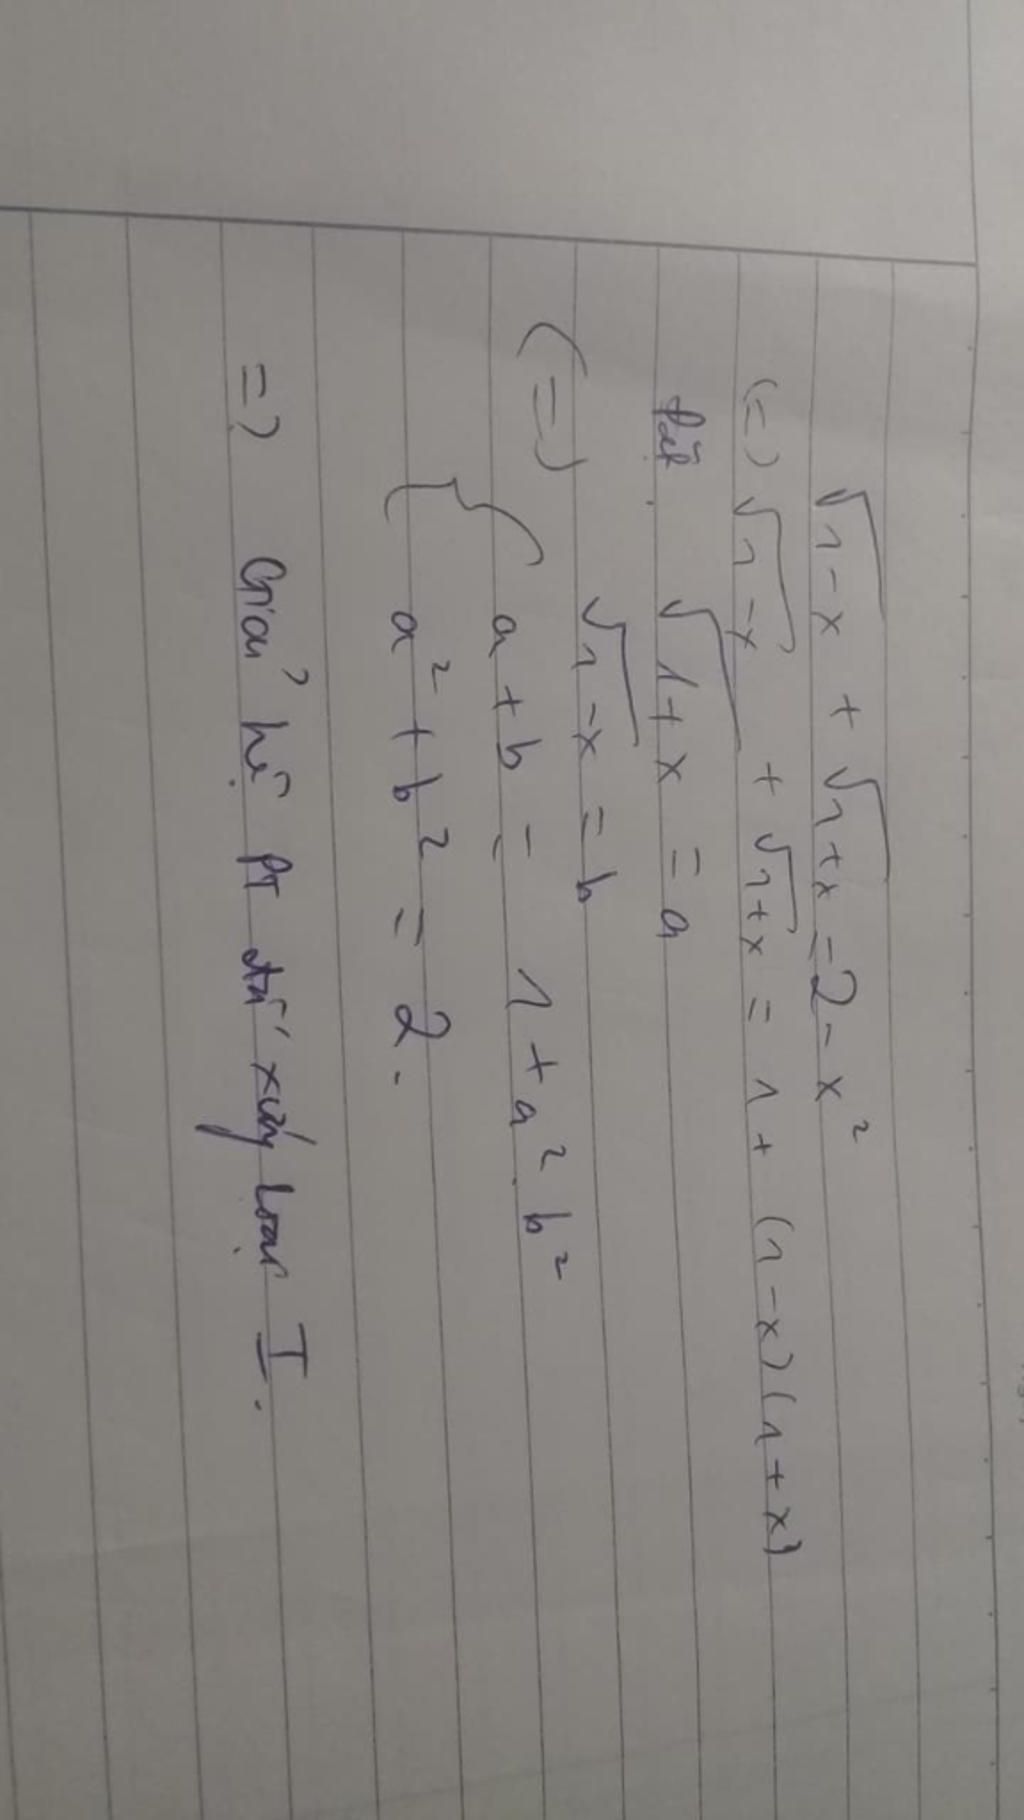 √1-x + √1+x = 2 - x²
(=) √1-x + √1+x = 1 + (1-x)(1+x)
Đặt √1+x = a
√1-x = b
(=) { a + b = 1 + a²b²
a² + b² = 2.
=> Giải hệ PT đối xứng loại I.